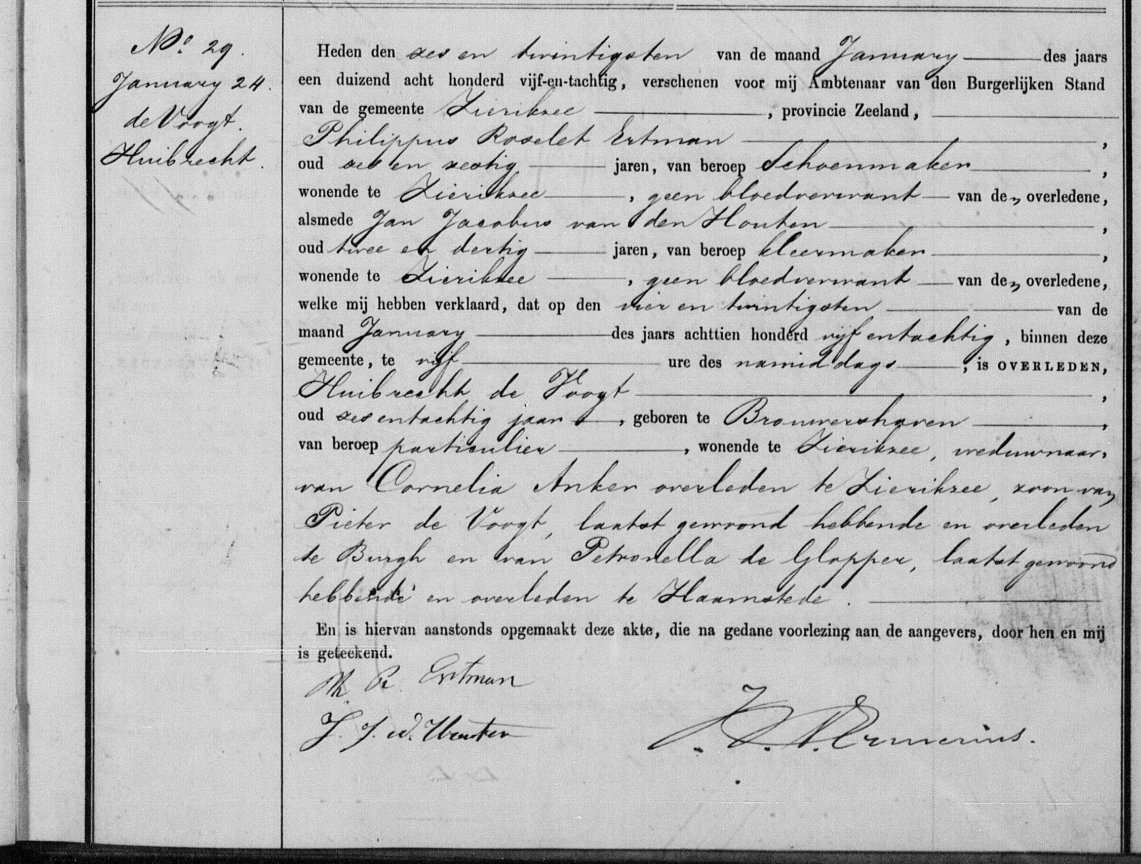 No. 29.
January 24.
de Voogt.
Huibrecht.
Heden den zes en twintigsten van de maand January des jaars
een duizend acht honderd vijf-en-tachtig, verschenen voor mij Ambtenaar van den Burgerlijken Stand
van de gemeente Zierikzee, provincie Zeeland,
Philippus Roselet Ertman,
oud zes en zestig jaren, van beroep Schoenmaker,
wonende te Zierikzee, geen bloedverwant van den overledene,
alsmede Jan Jacobus van den Houten,
oud twee en dertig jaren, van beroep kleermaker,
wonende te Zierikzee, geen bloedverwant van den overledene,
welke mij hebben verklaard, dat op den vier en twintigsten van de
maand January des jaars achttien honderd vijf entachtig, binnen deze
gemeente, te vijf ure des namiddags, is OVERLEDEN,
Huibrecht de Voogt,
oud zes entachtig jaar, geboren te Brouwershaven,
van beroep particulier, wonende te Zierikzee, weduwnaar
van Cornelia Anker overleden te Zierikzee, zoon van
Pieter de Voogt, laatst gewoond hebbende en overleden
te Burgh en van Petronella de Glopper, laatst gewoond
hebbende en overleden te Haamstede.
En is hiervan aanstonds opgemaakt deze akte, die na gedane voorlezing aan de aangevers, door hen en mij
is geteekend.
Ph R. Ertman
J. J. vd. Houten
Ermerins.